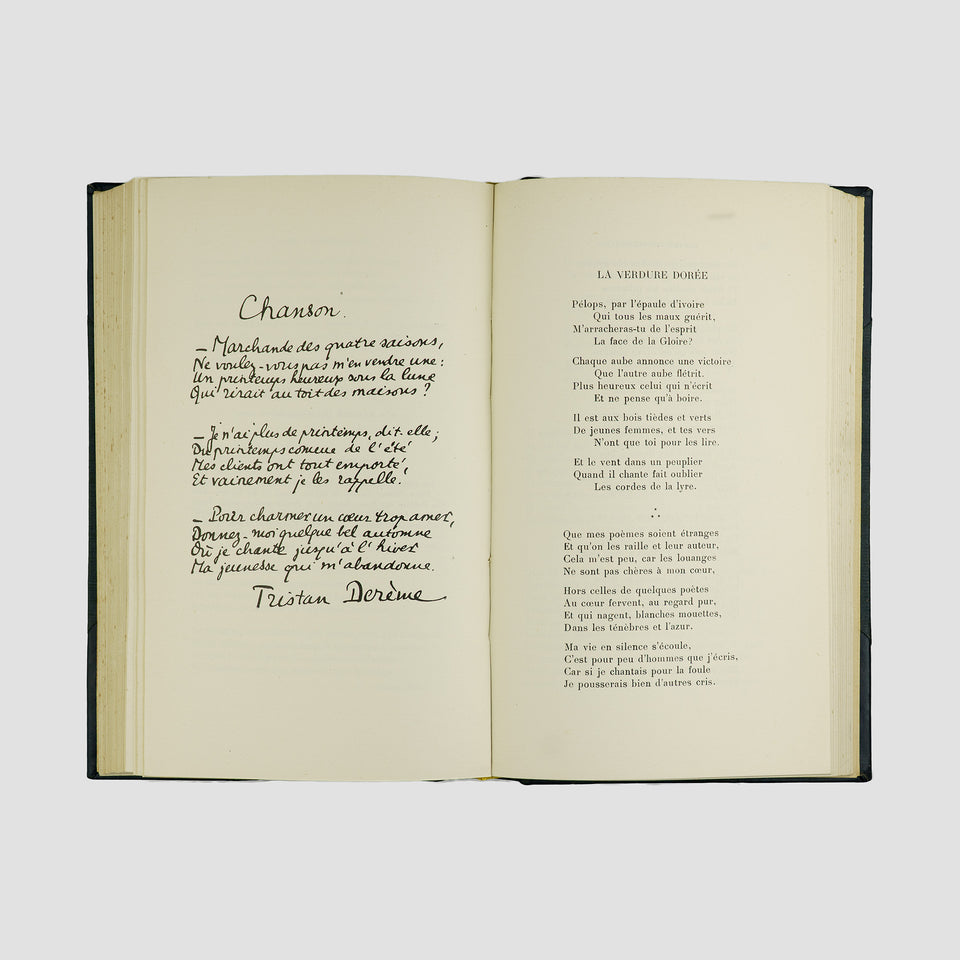 Chanson.
– Marchande des quatre saisons,
Ne voulez-vous pas m'en vendre une :
Un printemps heureux sous la lune
Qui rirait au toit des maisons ?
– Je n'ai plus de printemps, dit-elle ;
Du printemps comme de l'été
Mes clients ont tout emporté,
Et vainement je les rappelle.
– Pour charmer un cœur trop amer,
Donnez-moi quelque bel automne
Où je chante jusqu'à l'hiver
Ma jeunesse qui m'abandonne.
Tristan Derème
LA VERDURE DORÉE
Pélops, par l'épaule d'ivoire
Qui tous les maux guérit,
M'arracheras-tu de l'esprit
La face de la Gloire?
Chaque aube annonce une victoire
Que l'autre aube flétrit.
Plus heureux celui qui n'écrit
Et ne pense qu'à boire.
Il est aux bois tièdes et verts
De jeunes femmes, et tes vers
N'ont que toi pour les lire.
Et le vent dans un peuplier
Quand il chante fait oublier
Les cordes de la lyre.
∴
Que mes poèmes soient étranges
Et qu'on les raille et leur auteur,
Cela m'est peu, car les louanges
Ne sont pas chères à mon cœur,
Hors celles de quelques poètes
Au cœur fervent, au regard pur,
Et qui nagent, blanches mouettes,
Dans les ténèbres et l'azur.
Ma vie en silence s'écoule,
C'est pour peu d'hommes que j'écris,
Car si je chantais pour la foule
Je pousserais bien d'autres cris.